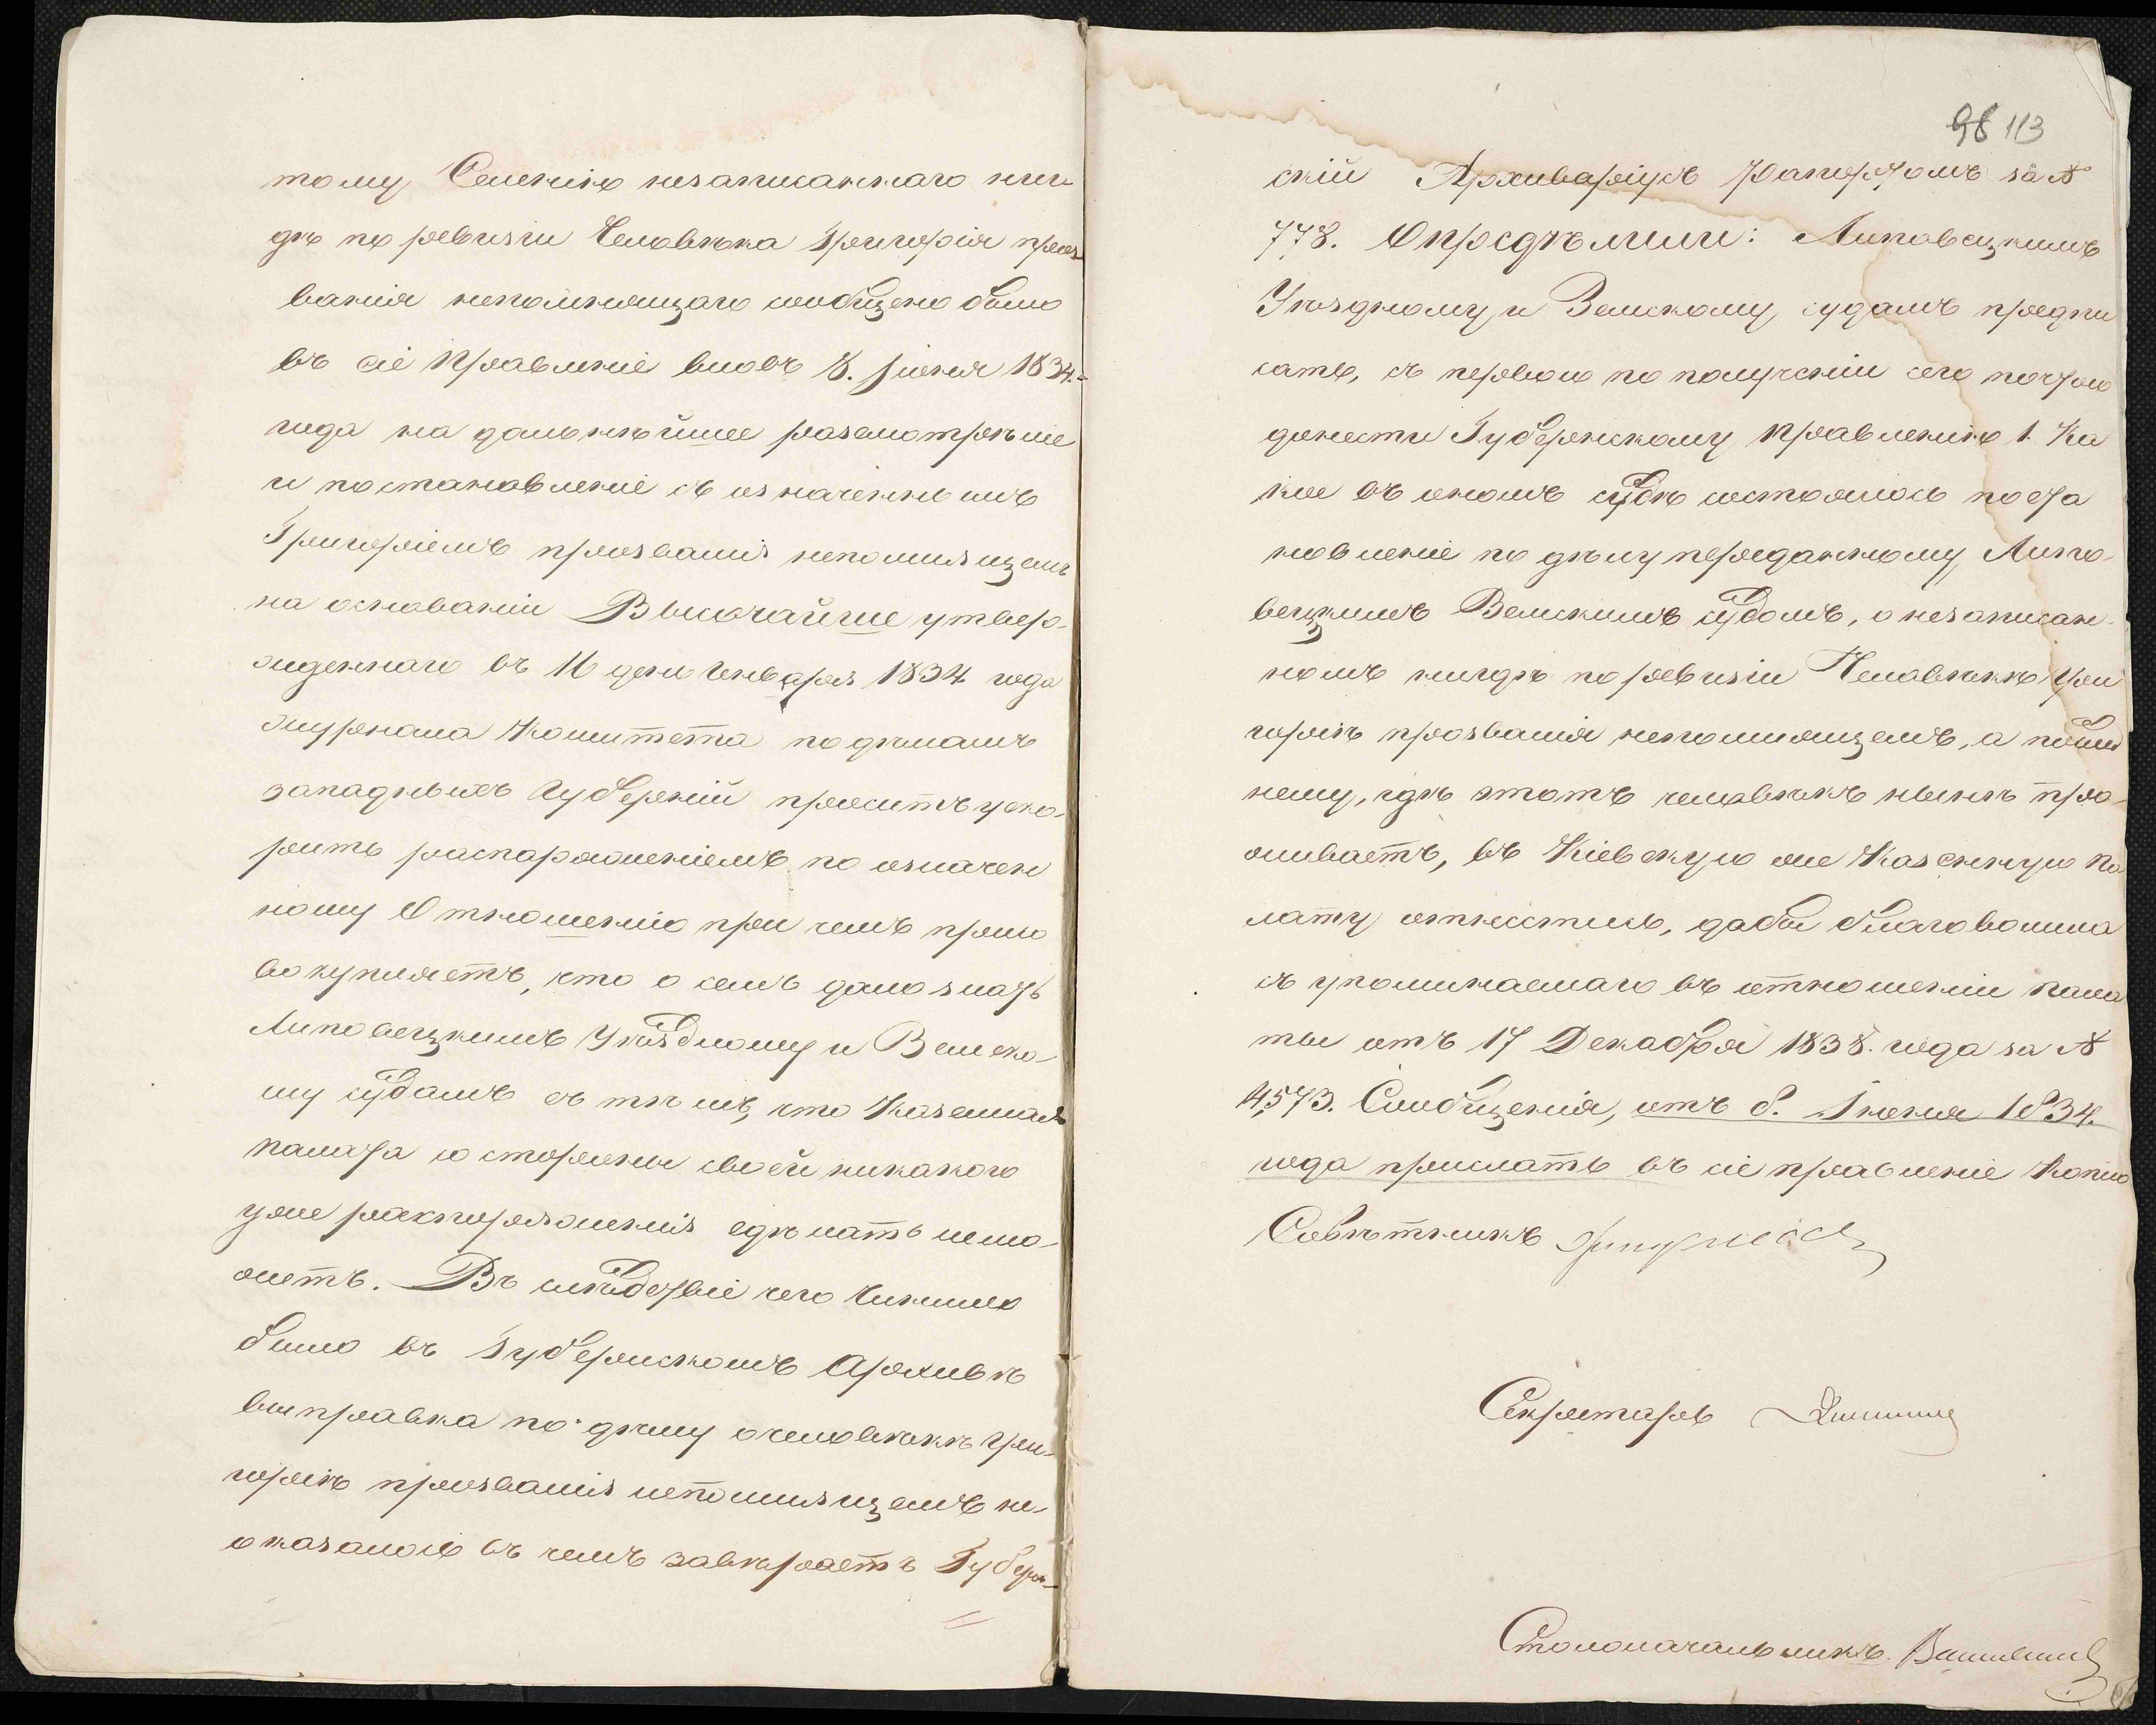 тому Селенію незаписаннаго ниг-
дѣ по ревизіи Человѣка Григорія проз-
ванія непомнящаго сообщено было
въ сіе Правленіе вновь 8. Іюня 1834.
года на дальнѣйшее разсмотрѣніе
и постановленіе съ означеннымъ
Григоріемъ прозванія непомнящемъ
на основаніи Высочайше утвер-
жденнаго въ 16 день Генваря 1834 года
журнала Комитета по дѣламъ
западныхъ Губерній проситъ уско-
рить распоряженіемъ по означен
ному Отношенію при чемъ присо
вокупляетъ, что о семъ дано знать
Липовецкимъ Уѣздному и Земско-
му судамъ съ тѣмъ, что Казенная
палата со стороны своей никакого
уже распоряженія сдѣлать немо-
жетъ. Въ слѣдствіе чего Чинима
было въ Губернскомъ Архивѣ
выправка по дѣлу о человѣкѣ Гри-
горіѣ прозванія непомнящемъ не-
оказалось въ чемъ завѣряетъ Губерн-
98 113
скій Архиваріусъ Рапортомъ за №
778. Опредѣлили: Липовецкимъ
Уѣздному и Земскому судамъ предпи
сать, съ первою по полученіи сего почтою
донести Губернскому Правленію 1. Ка
кое въ ономъ судѣ состоялось поста
новленіе по дѣлу переданному Липо-
вецкимъ Земскимъ судомъ, о незаписан-
номъ нигдѣ по ревизіи Человѣкѣ Гри
горіѣ прозванія непомнящемъ, а послѣд
нему, гдѣ этотъ человѣкъ нынѣ про-
живаетъ, въ Кіевскую же Казенную Па
лату отнестись, дабы благоволила
съ упоминаемаго въ отношеніи пала
ты отъ 17 Декабря 1838. года за №
14573. Сообщенія, отъ 8. Іюня 1834.
года прислать въ сіе правленіе Копію
Совѣтникъ
Секретарь
Столоначальникъ